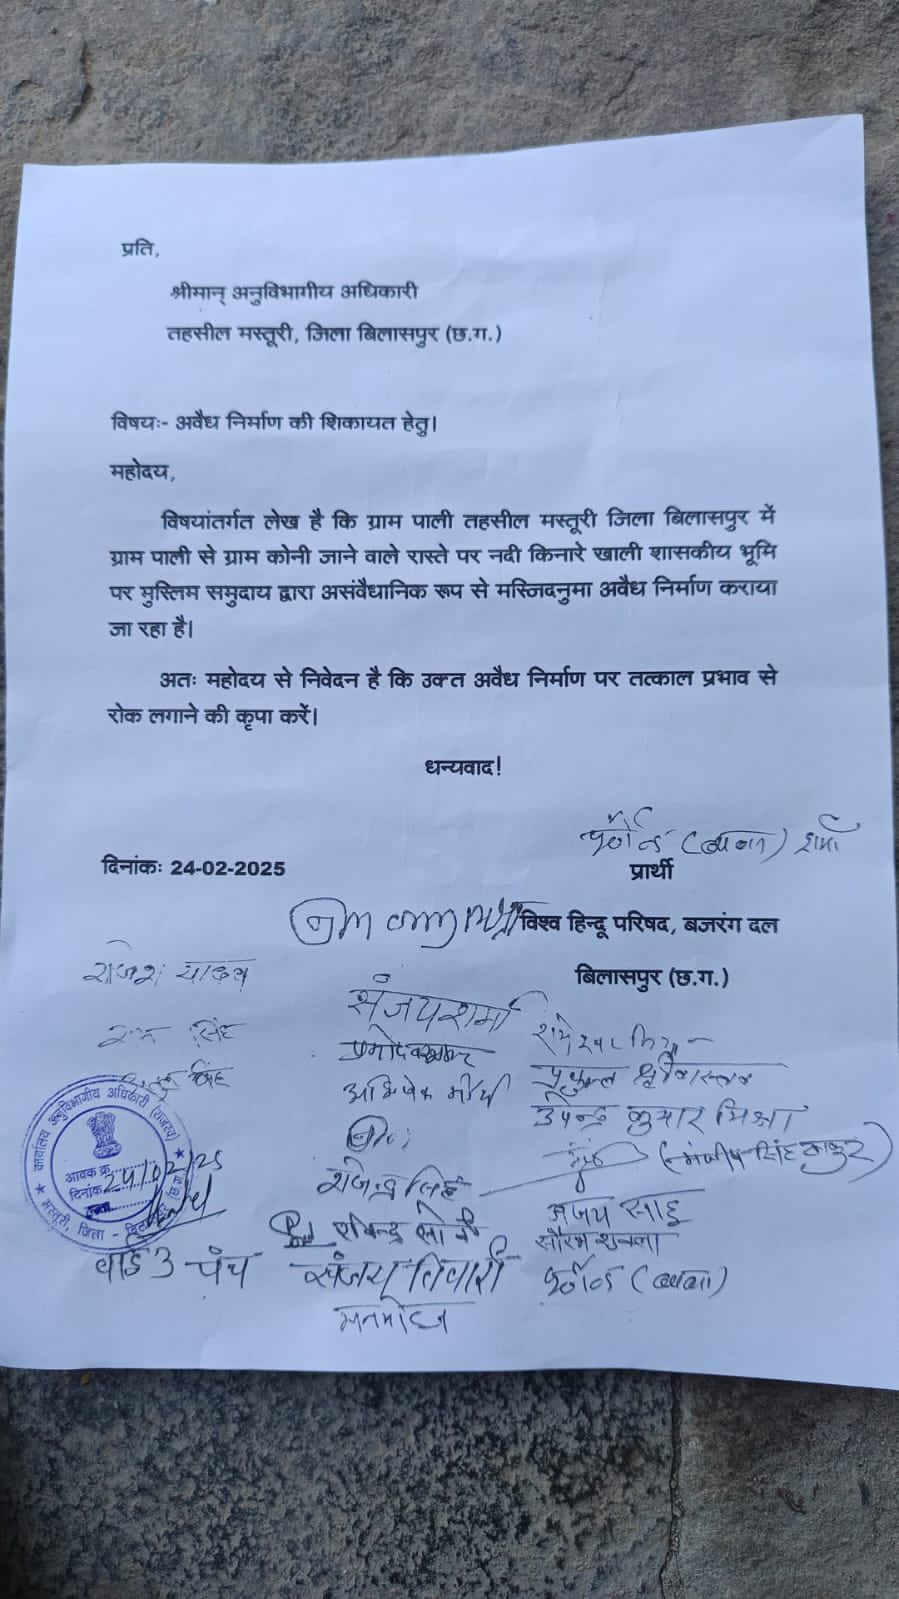 प्रति,
श्रीमान् अनुविभागीय अधिकारी
तहसील मस्तूरी, जिला बिलासपुर (छ.ग.)
विषयः- अवैध निर्माण की शिकायत हेतु।
महोदय,
विषयांतर्गत लेख है कि ग्राम पाली तहसील मस्तूरी जिला बिलासपुर में
ग्राम पाली से ग्राम कोनी जाने वाले रास्ते पर नदी किनारे खाली शासकीय भूमि
पर मुस्लिम समुदाय द्वारा असंवैधानिक रूप से मस्जिदनुमा अवैध निर्माण कराया
जा रहा है।
अतः महोदय से निवेदन है कि उक्त अवैध निर्माण पर तत्काल प्रभाव से
रोक लगाने की कृपा करें।
धन्यवाद!
शर्मा
दिनांकः 24-02-2025
प्रार्थी
विश्व हिन्दू परिषद, बजरंग दल
बिलासपुर (छ.ग.)
राजेश यादव
संजय शर्मा
सिंह
अभिषेक
उपेन्द्र कुमार मिश्रा
कार्यालय अनुविभागीय अधिकारी (राजस्व)
आवक क्र.
दिनांक 24/02/25
मस्तूरी, जिला -
राजेन्द्र सिंह
सिंह ठाकुर)
अजय साहू
सौरभ शुक्ला
वार्ड 3 पंच
संजय तिवारी